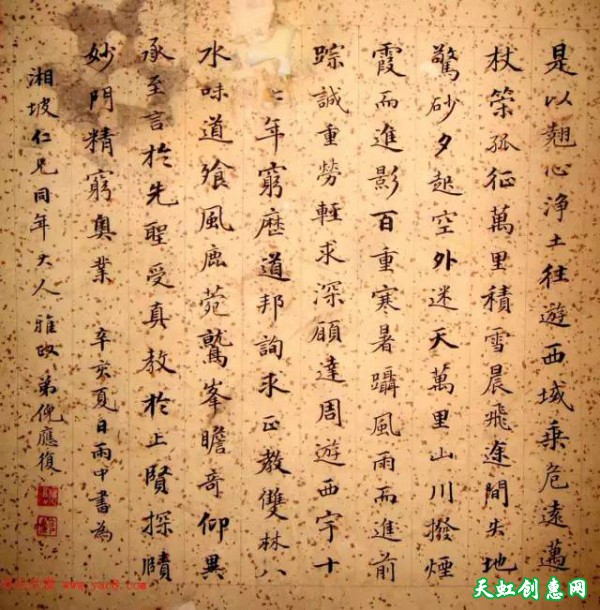 是以翹心淨土往遊西域乘危遠邁
杖策孤征萬里積雪晨飛途間失地
驚砂夕起空外迷天萬里山川撥煙
霞而進影百重寒暑躡風雨而進前
踪誠重勞輕求深願達周遊西宇十
年窮歷道邦詢求正教雙林八
水味道飱風鹿菀鷲峯瞻奇仰異
承至言於先聖受真教於上賢探賾
妙門精窮奧業 辛亥夏日雨中書為
湘坡仁兄同年大人雅政 弟倪應復
天虹创惠网